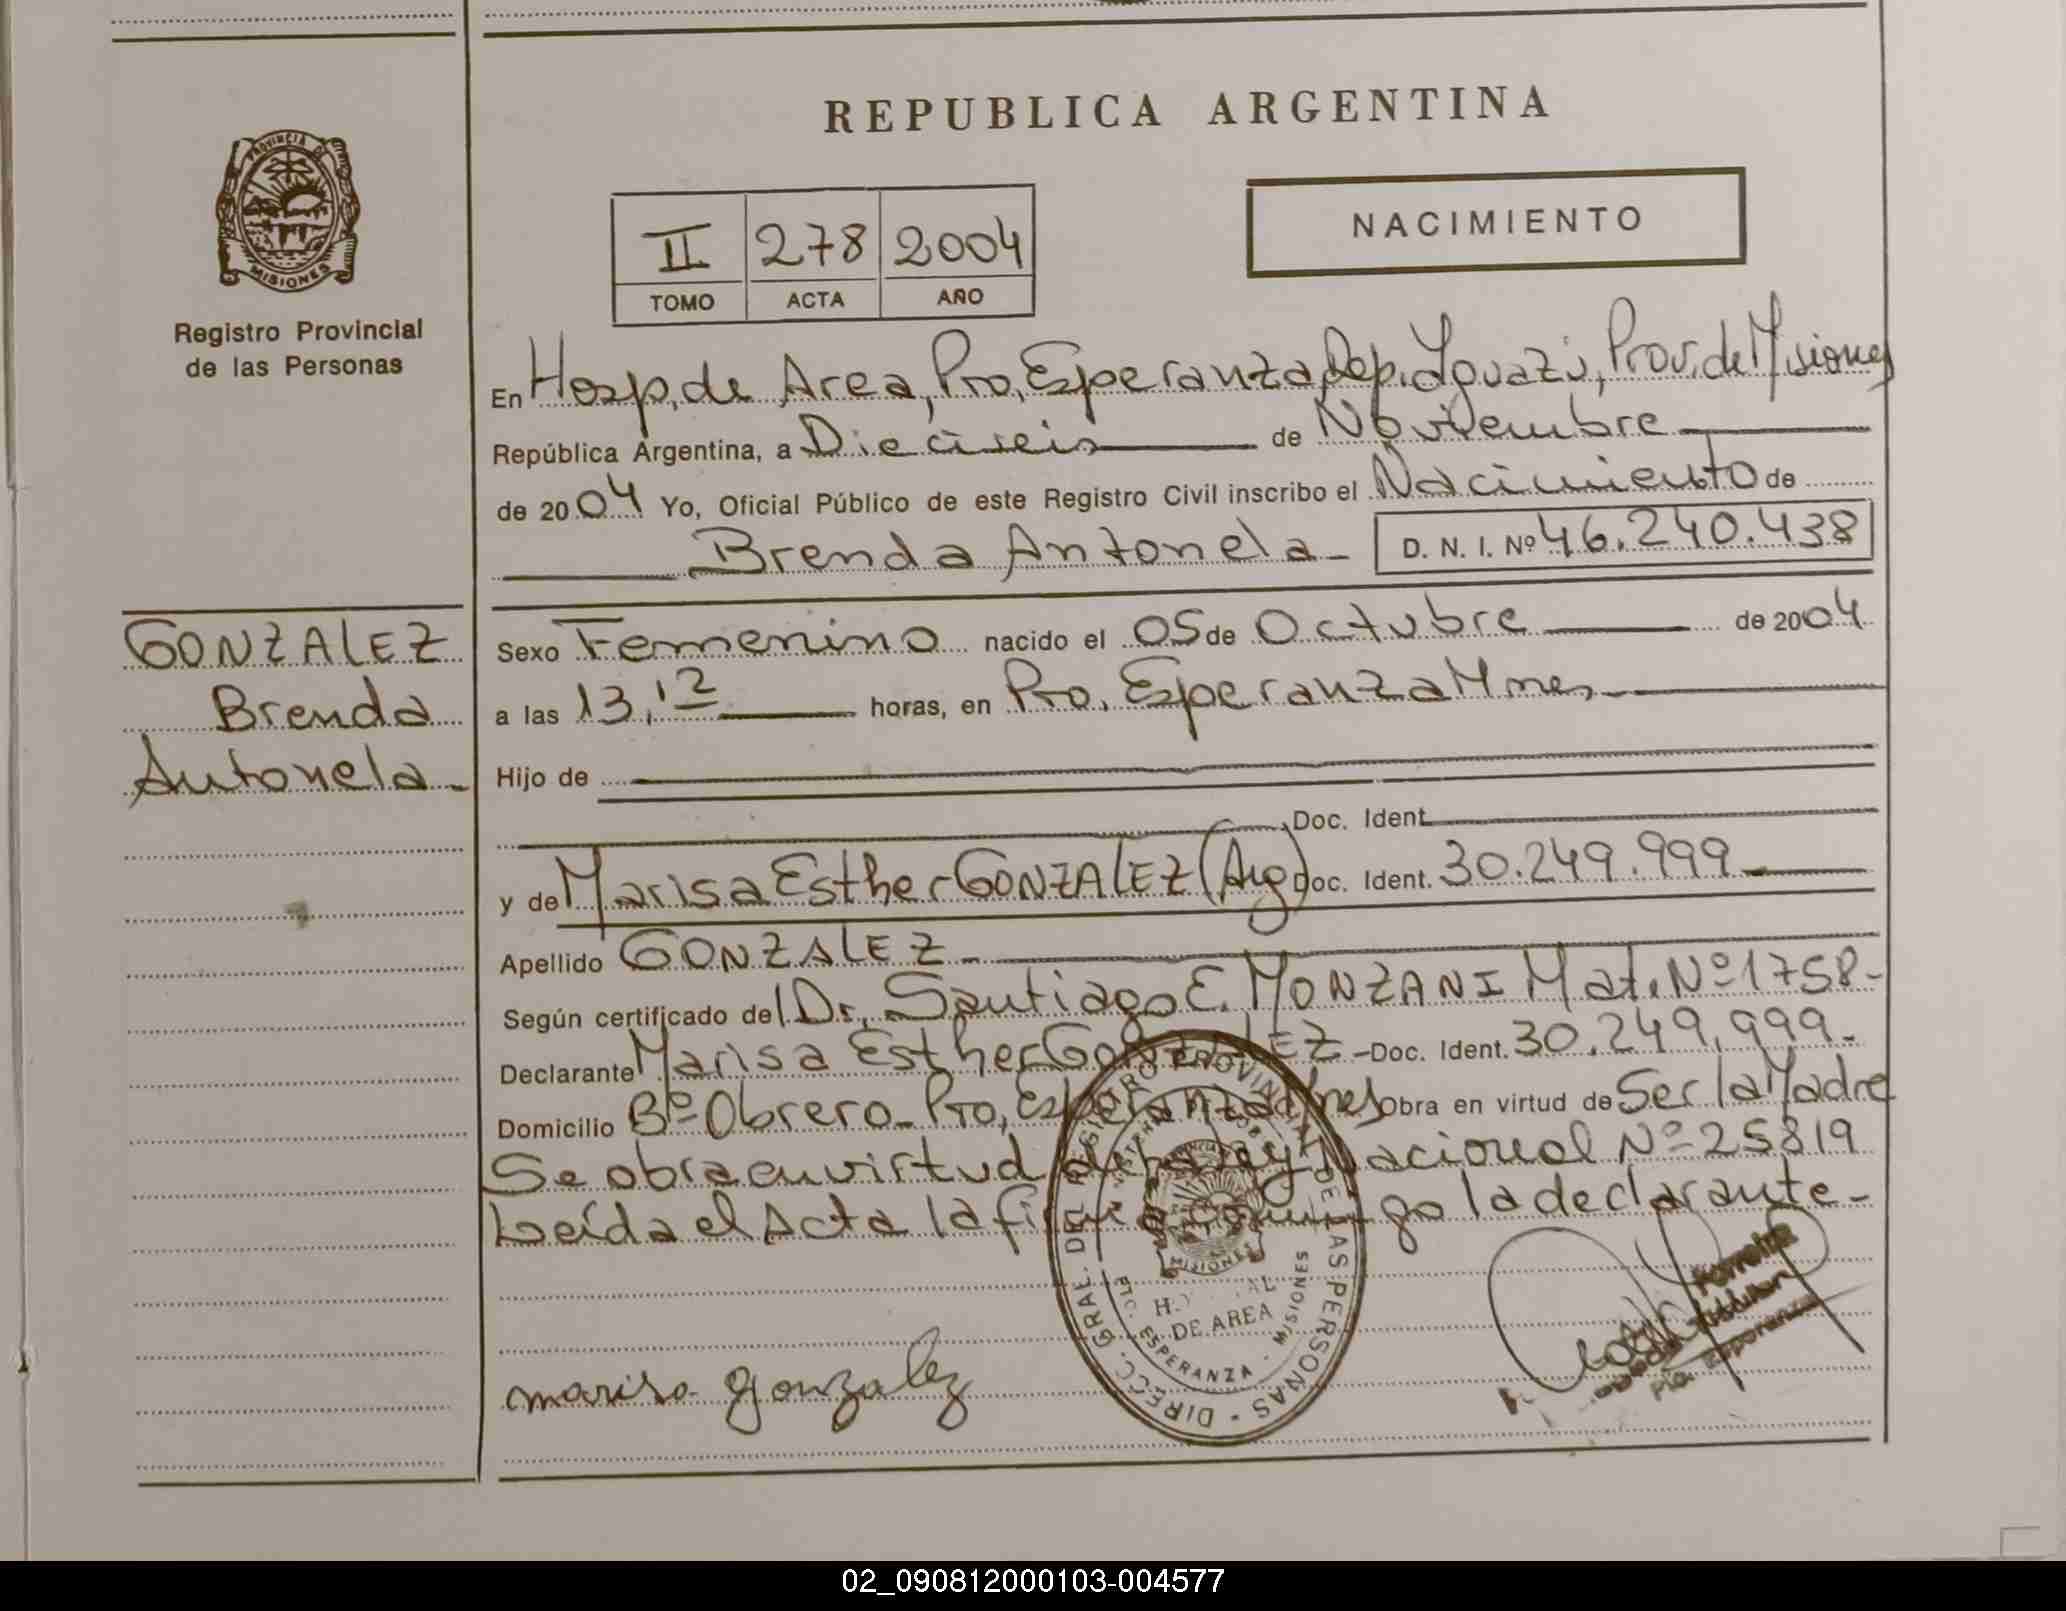 REPUBLICA ARGENTINA
PROVINCIA DE
MISIONES
Registro Provincial
de las Personas
II 278 2004
TOMO ACTA AÑO
NACIMIENTO
En Hosp. de Area, Pto, Esperanza Dep. Iguazú, Prov. de Misiones
República Argentina, a Dieciseis de Noviembre
de 2004 Yo, Oficial Público de este Registro Civil inscribo el Nacimiento de
Brenda Antonela - D. N. I. Nº 46.240.438
GONZALEZ
Brenda
Antonela -
Sexo Femenino nacido el 05 de Octubre de 2004
a las 13,12 horas, en Pto. Esperanza Mnes,
Hijo de
Doc. Ident.
y de Marisa Esther GONZALEZ (Arg) Doc. Ident. 30.249.999
Apellido GONZALEZ -
Según certificado del Dr, Santiago E. MONZANI Mat. Nº 1758-
Declarante Marisa Esther GONZALEZ - Doc. Ident. 30.249.999-
Domicilio Bº Obrero - Pto, Esperanza Mnes Obra en virtud de Ser la Madre
Se obra en virtud de la Ley Nacional Nº 25819
Leída el Acta la firma conmigo la declarante -
DIRECC. GRAL. DEL REGISTRO PROVINCIAL DE LAS PERSONAS
MISIONES
HOSPITAL
DE AREA
PTO. ESPERANZA - MISIONES
marisa gonzalez
Ferreira
Pto. Esperanza
02_090812000103-004577